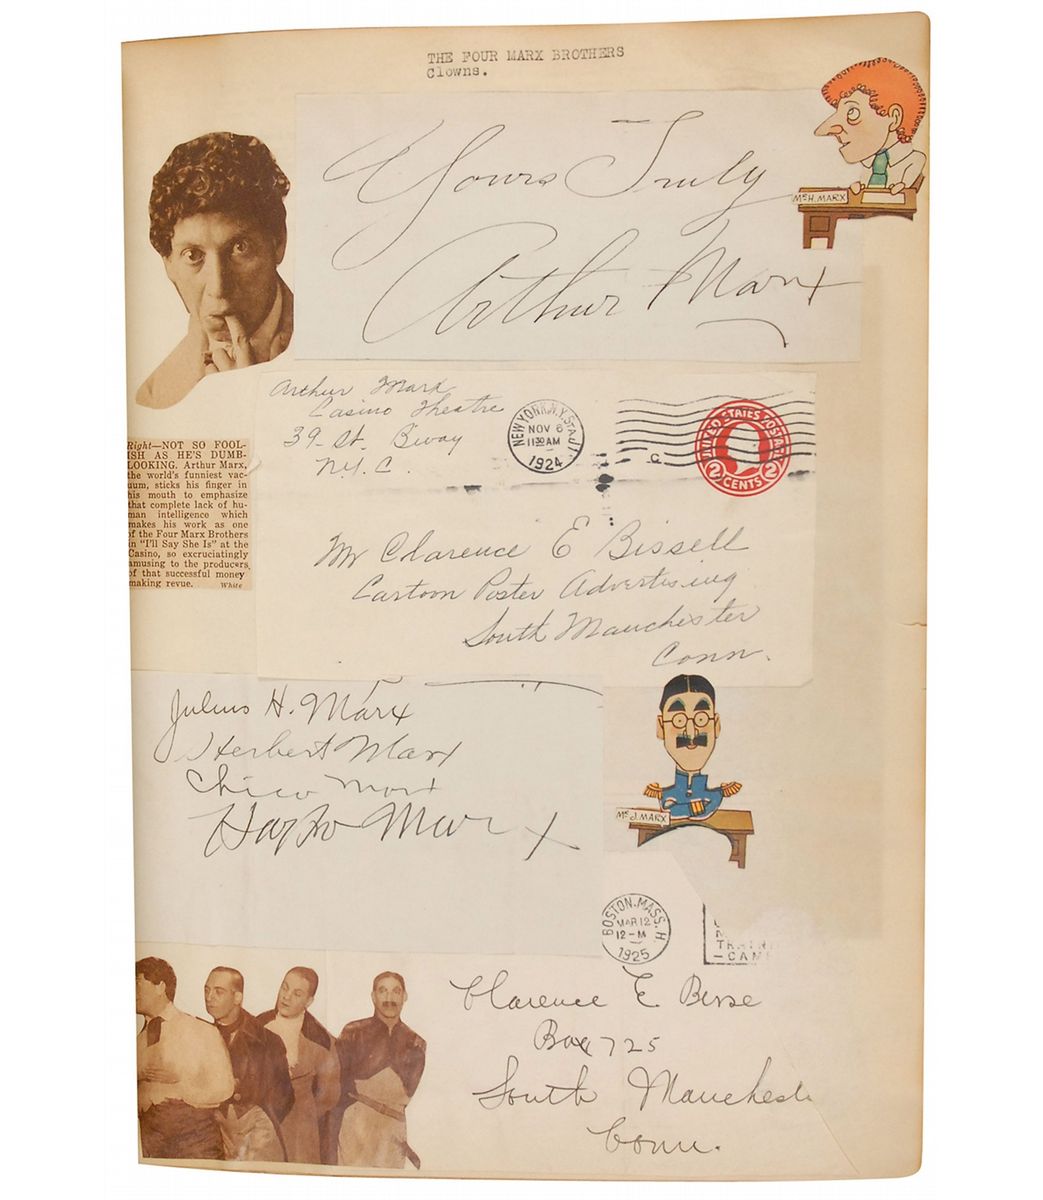 THE FOUR MARX BROTHERS
Clowns.
Yours Truly
Arthur Marx
Mr H. MARX
Arthur Marx
Casino Theatre
39 St. Bway
N.Y.C.
NEW YORK, N.Y. STA.J
NOV 6
11 30 AM
1924
C
UNITED STATES POSTAGE
2 CENTS 2
Right—NOT SO FOOL-
ISH AS HE'S DUMB-
LOOKING. Arthur Marx,
the world's funniest vac-
uum, sticks his finger in
his mouth to emphasize
that complete lack of hu-
man intelligence which
makes his work as one
of the Four Marx Brothers
in "I'll Say She Is" at the
Casino, so excruciatingly
amusing to the producers
of that successful money
making revue. White
Mr Clarence E Bissell
Cartoon Poster Advertising
South Manchester
Conn.
Julius H. Marx
Herbert Marx
Chico Marx
Harpo Marx
Mr J. MARX
BOSTON, MASS. H.
MAR 12
12-M
1925
TRAIN
-CAM
Clarence E
Box 725
South Manchest
Conn.